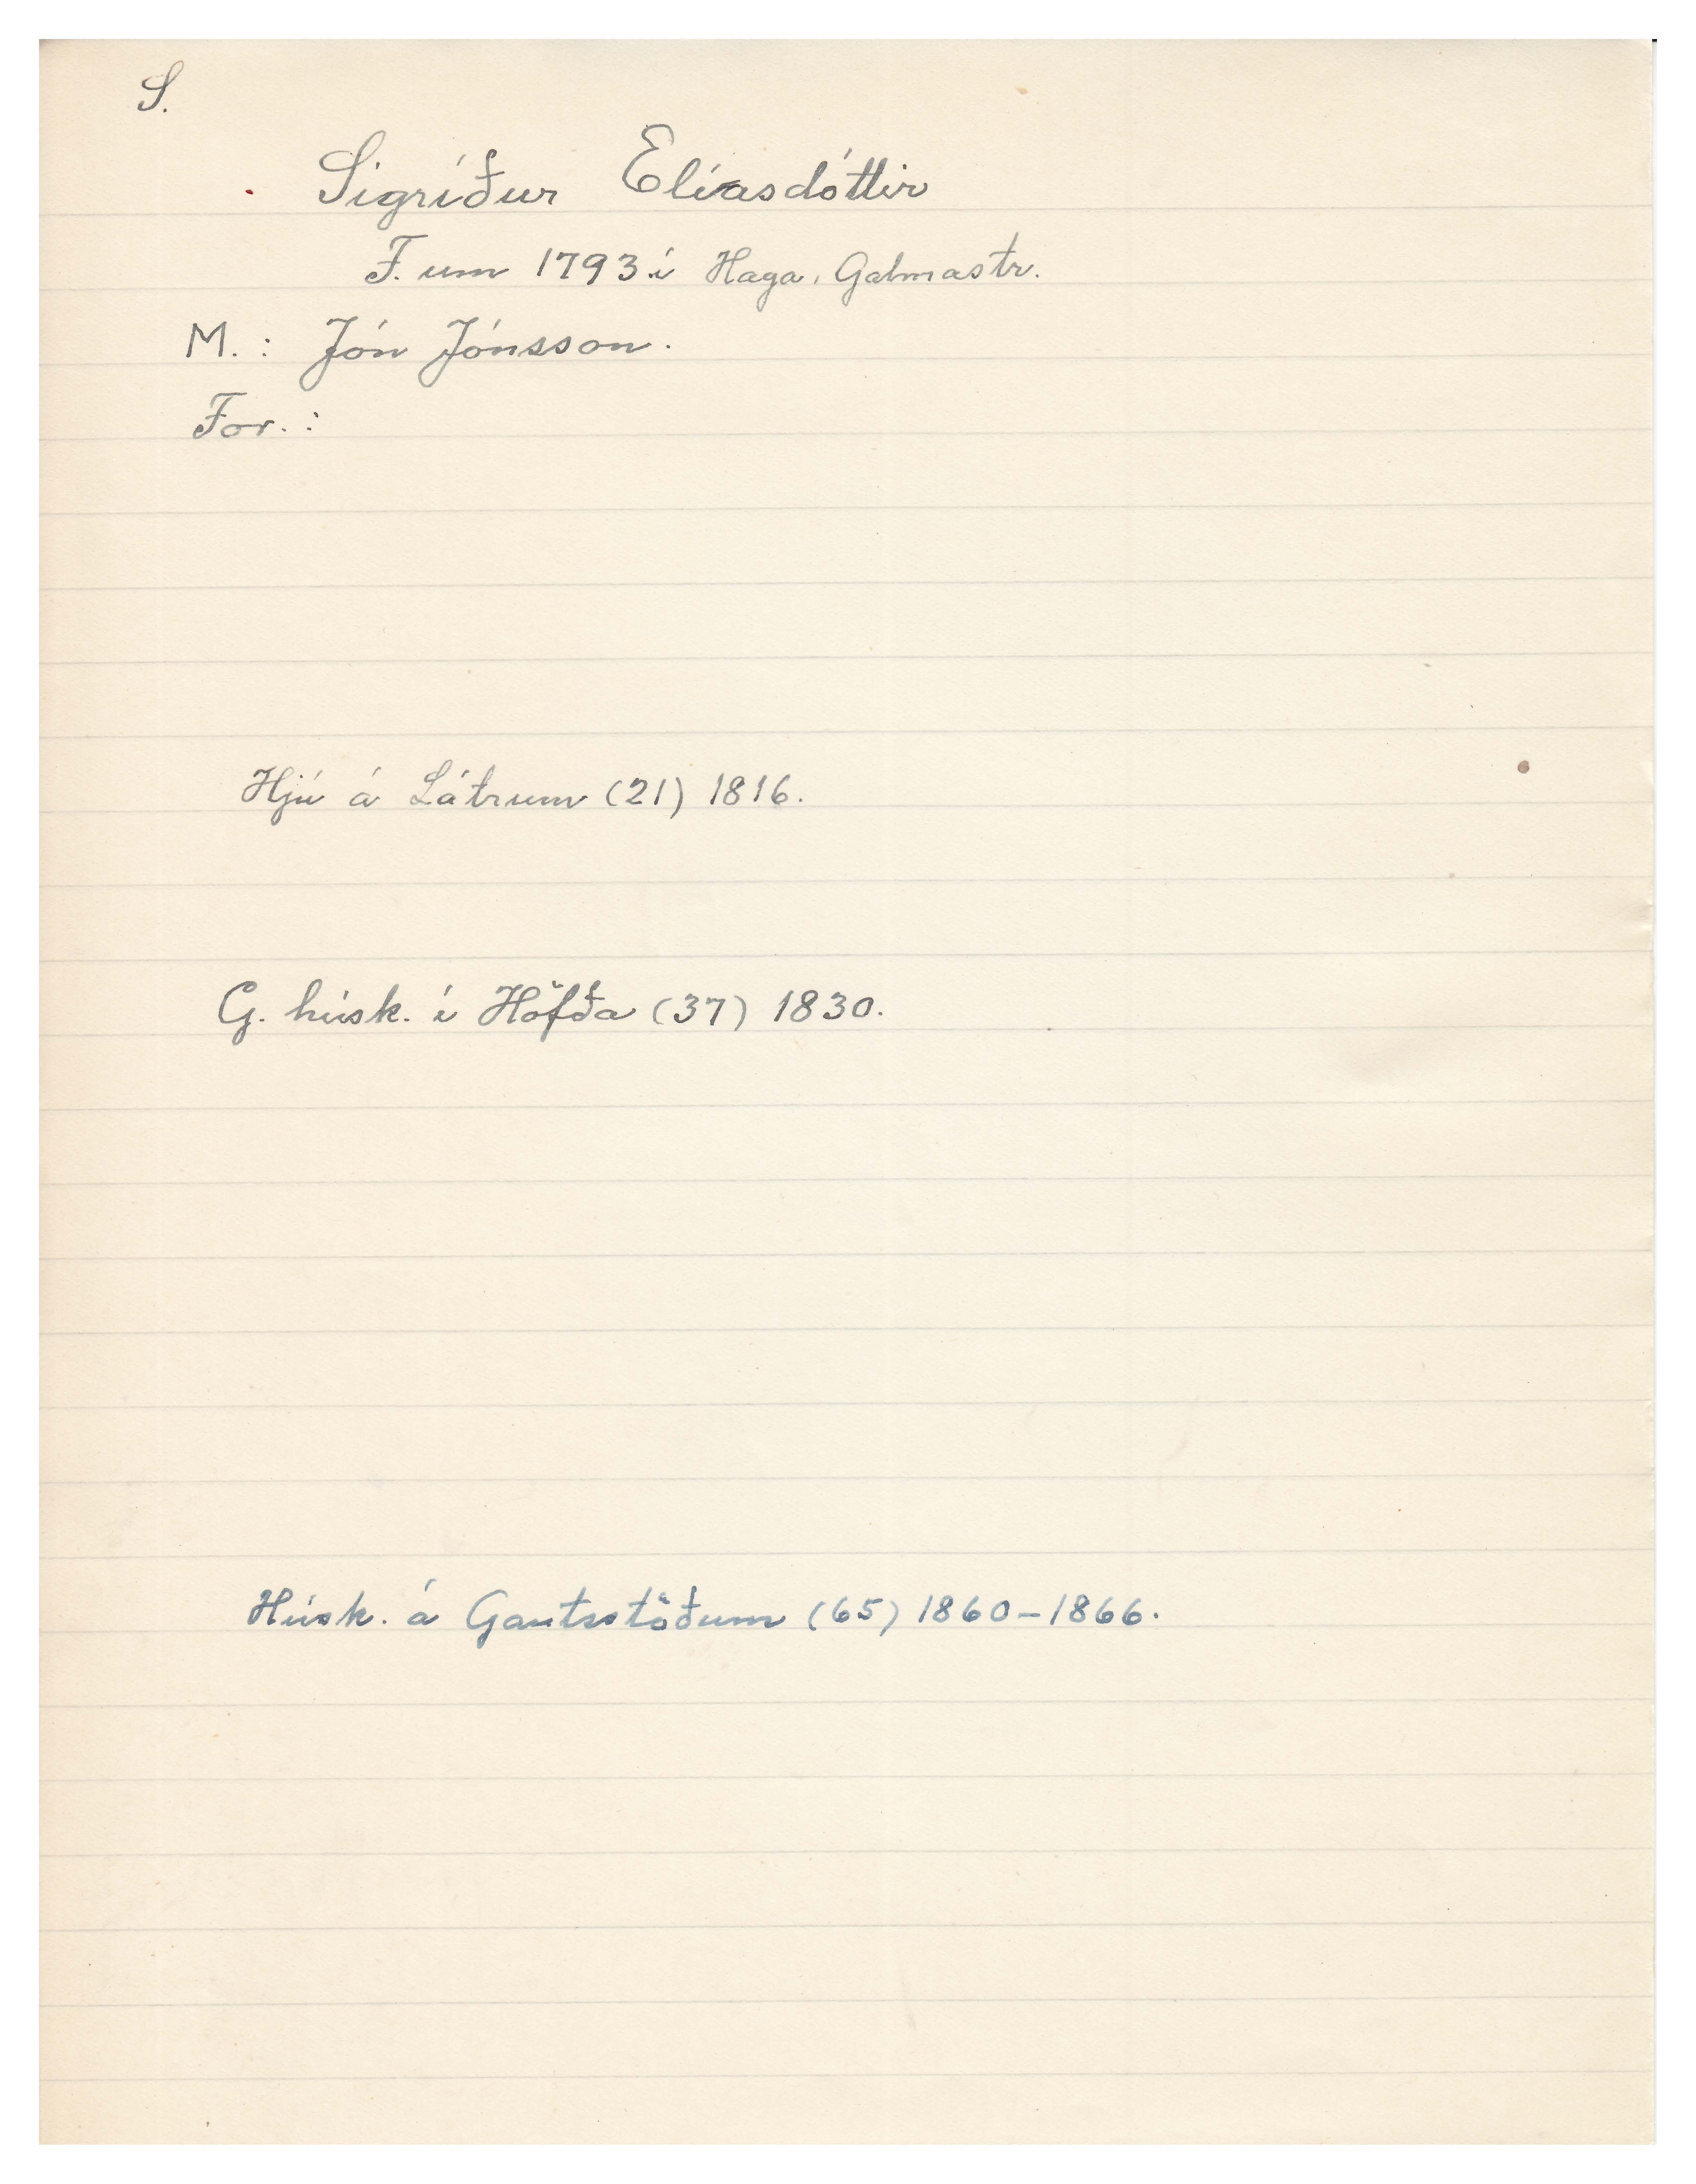 S.
Sigríður Elíasdóttir
F. um 1793 í Haga, Galmastr.
M.: Jón Jónsson.
For.:
Hjú á Látrum (21) 1816.
G. húsk. í Höfða (37) 1830.
Húsk. á Gautsstöðum (65) 1860-1866.